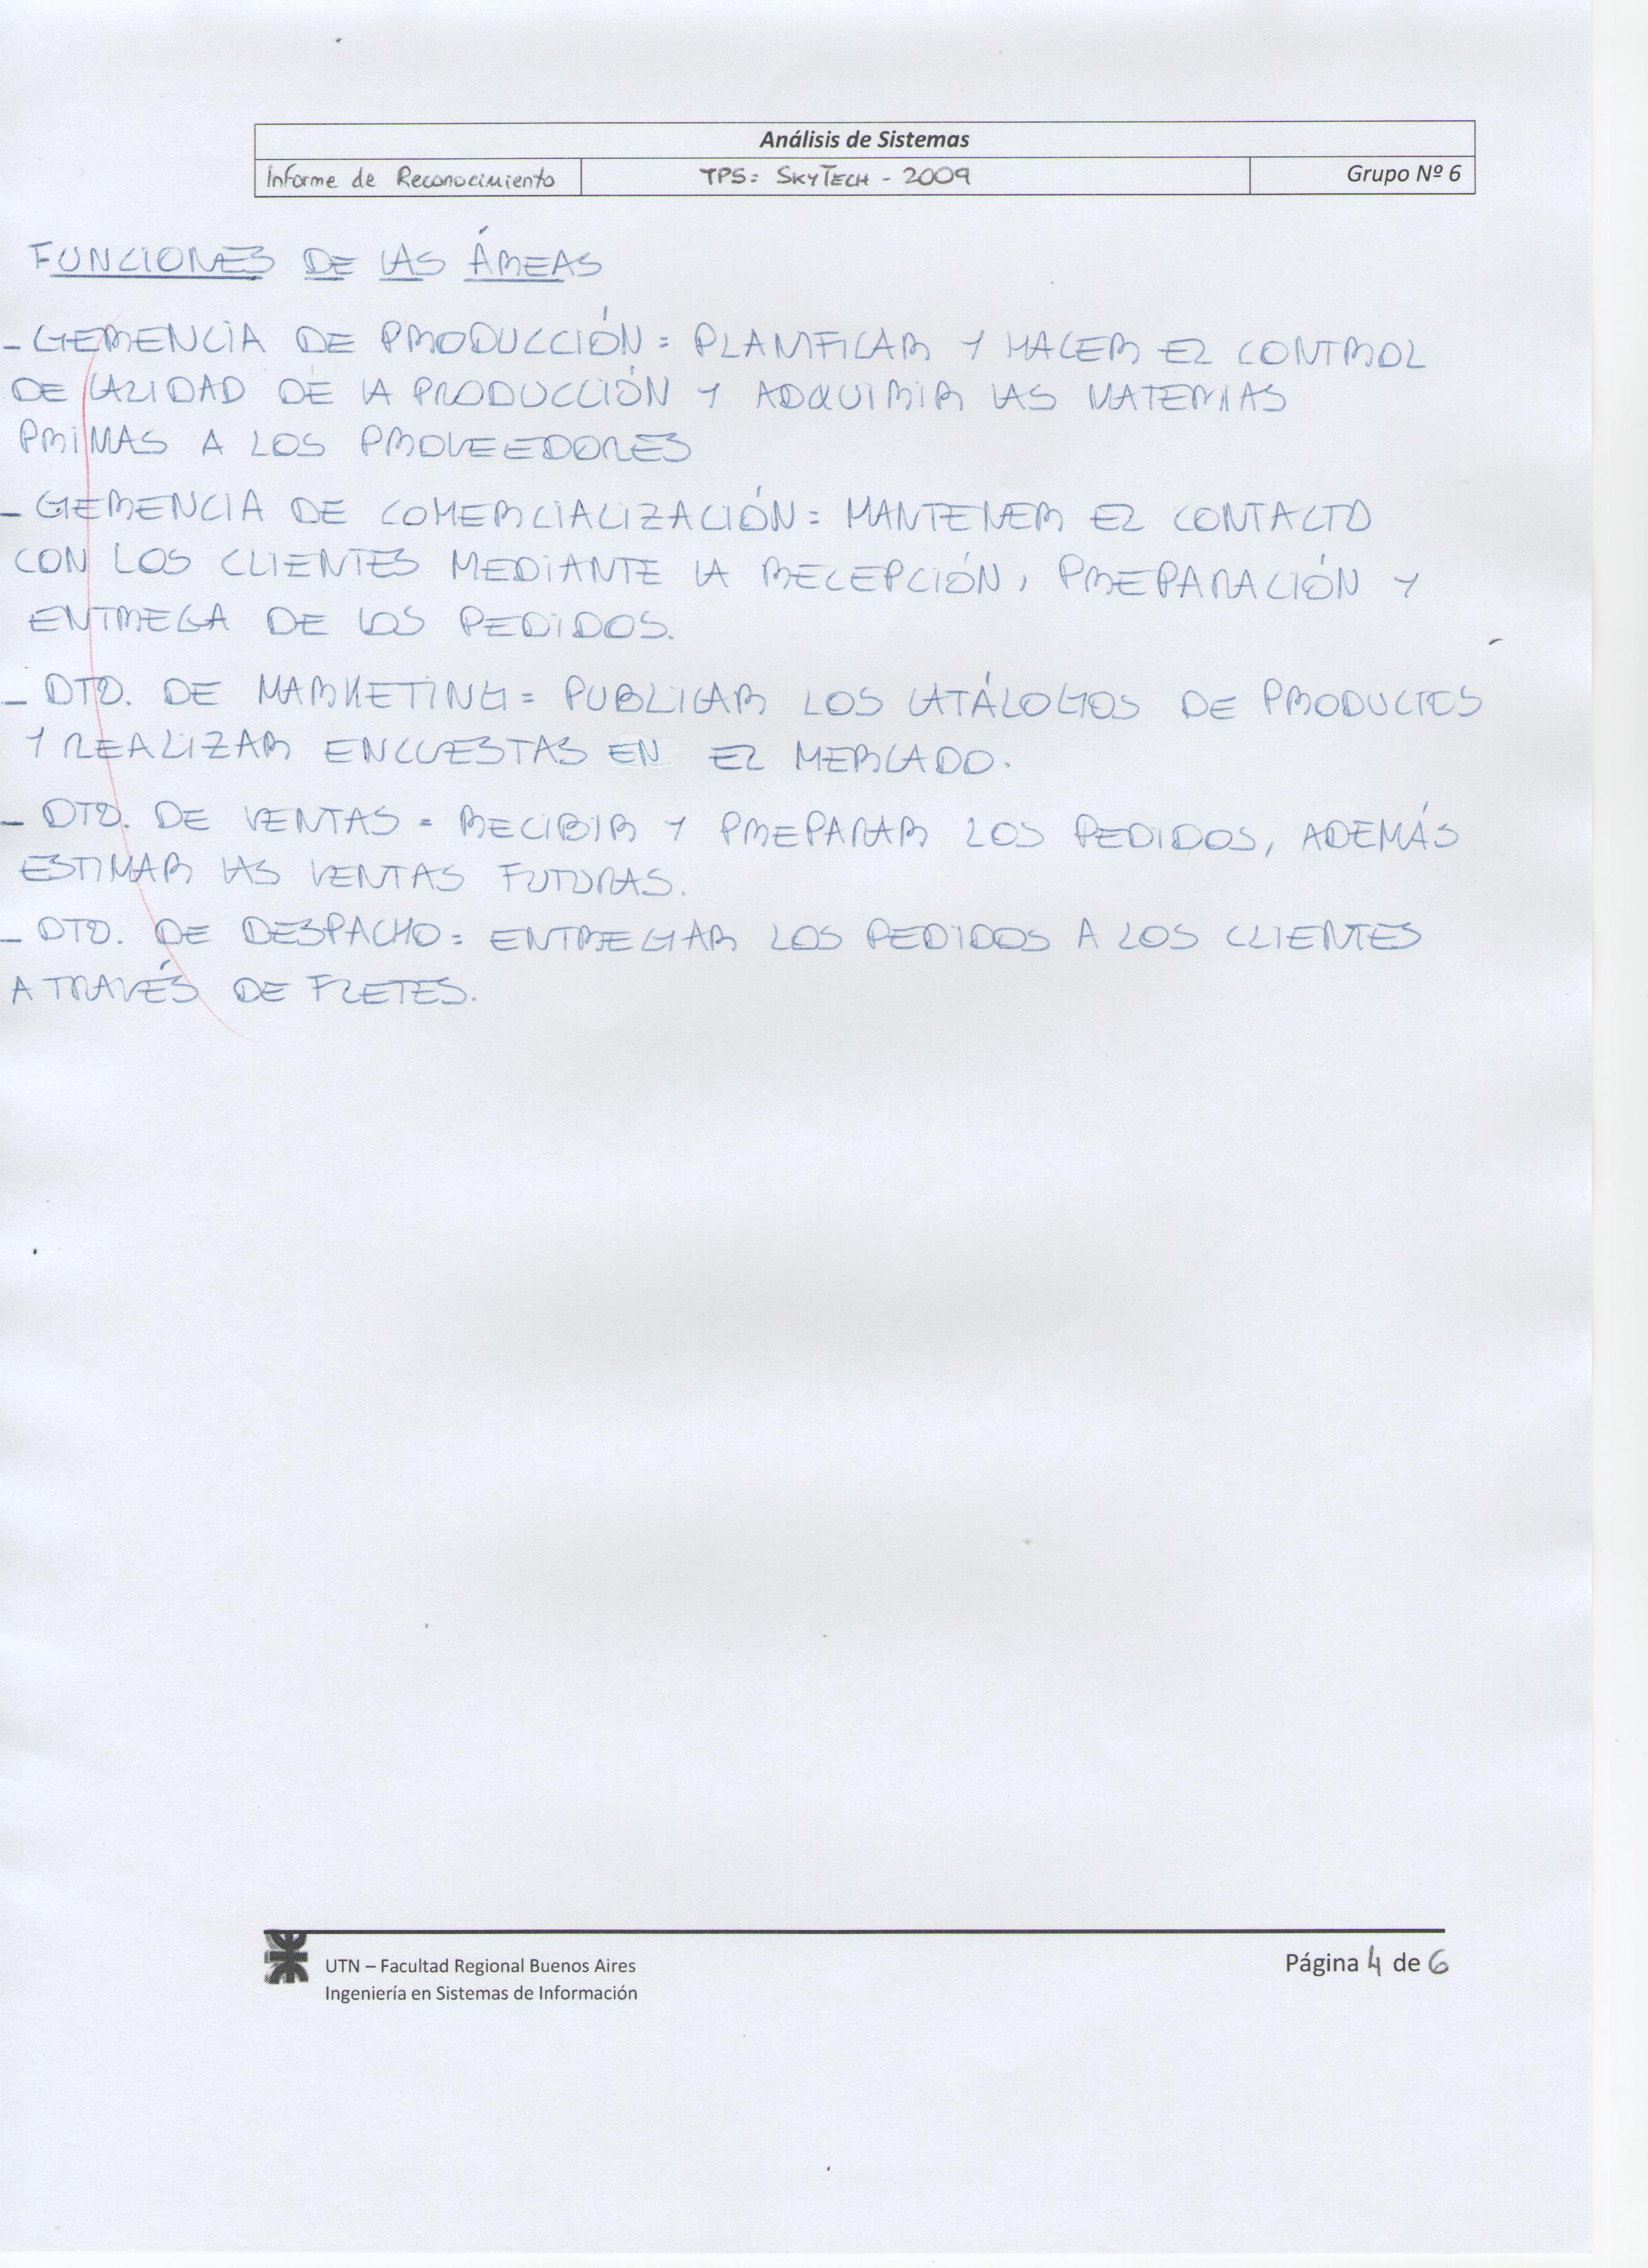 Análisis de Sistemas
Informe de Reconocimiento TPS: SKYTECH - 2009 Grupo Nº 6
FUNCIONES DE LAS ÁREAS
- GERENCIA DE PRODUCCIÓN: PLANIFICAR Y HACER EL CONTROL
DE CALIDAD DE LA PRODUCCIÓN Y ADQUIRIR LAS MATERIAS
PRIMAS A LOS PROVEEDORES
- GERENCIA DE COMERCIALIZACIÓN: MANTENER EL CONTACTO
CON LOS CLIENTES MEDIANTE LA RECEPCIÓN, PREPARACIÓN Y
ENTREGA DE LOS PEDIDOS.
- DTO. DE MARKETING: PUBLICAR LOS CATÁLOGOS DE PRODUCTOS
Y REALIZAR ENCUESTAS EN EL MERCADO.
- DTO. DE VENTAS: RECIBIR Y PREPARAR LOS PEDIDOS, ADEMÁS
ESTIMAR LAS VENTAS FUTURAS.
- DTO. DE DESPACHO: ENTREGAR LOS PEDIDOS A LOS CLIENTES
A TRAVÉS DE FLETES.
UTN – Facultad Regional Buenos Aires Página 4 de 6
Ingeniería en Sistemas de Información